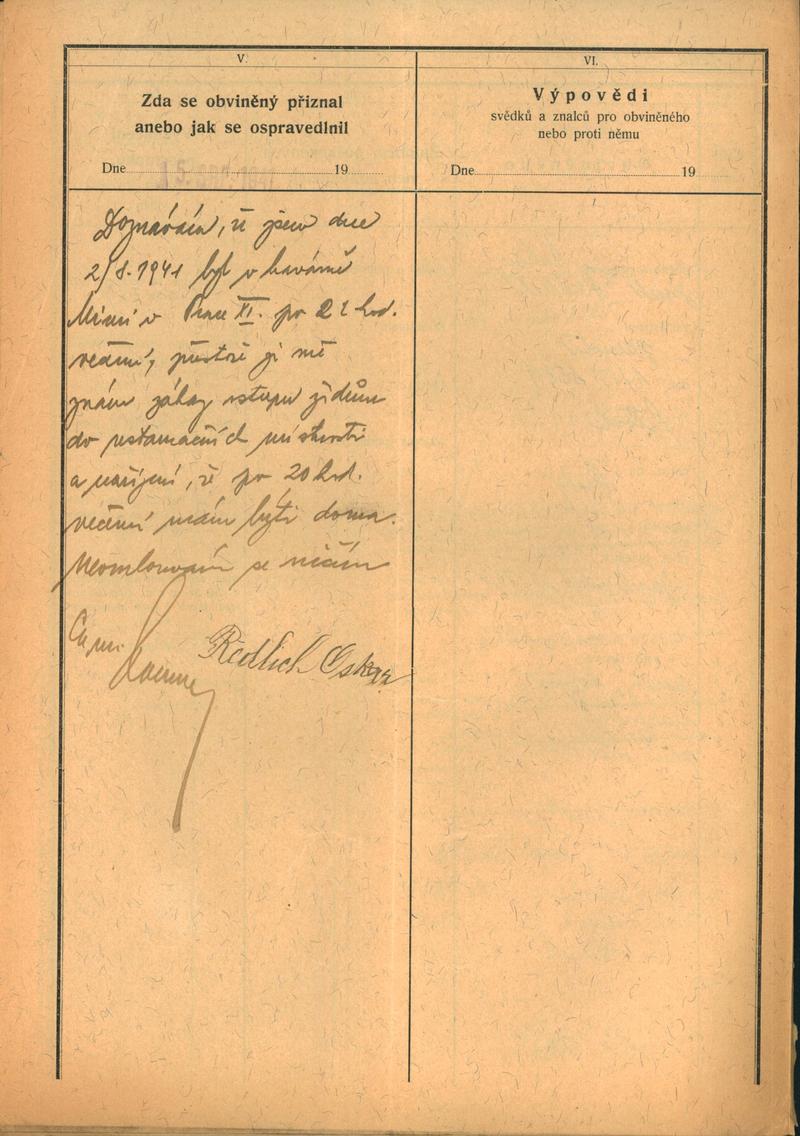 V.
Zda se obviněný přiznal
anebo jak se ospravedlnil
Dne 15. 19
Doznávám, že jsem dne
2/8. 1941 byl v kavárně
v Praze XI. po 21 hod.
večerní, přestože je mě
znám zákaz vstupu židům
do restauračních místností
a nařízení, že po 20 hod.
večerní mám býti doma.
Neomlouvám se ničím
Redlich Oskar
VI.
Výpovědi
svědků a znalců pro obviněného
nebo proti němu
Dne 19